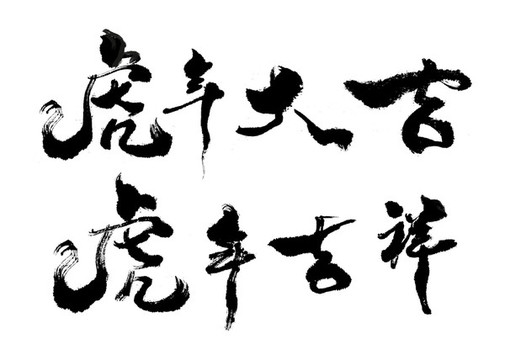 虎年大吉
虎年吉祥